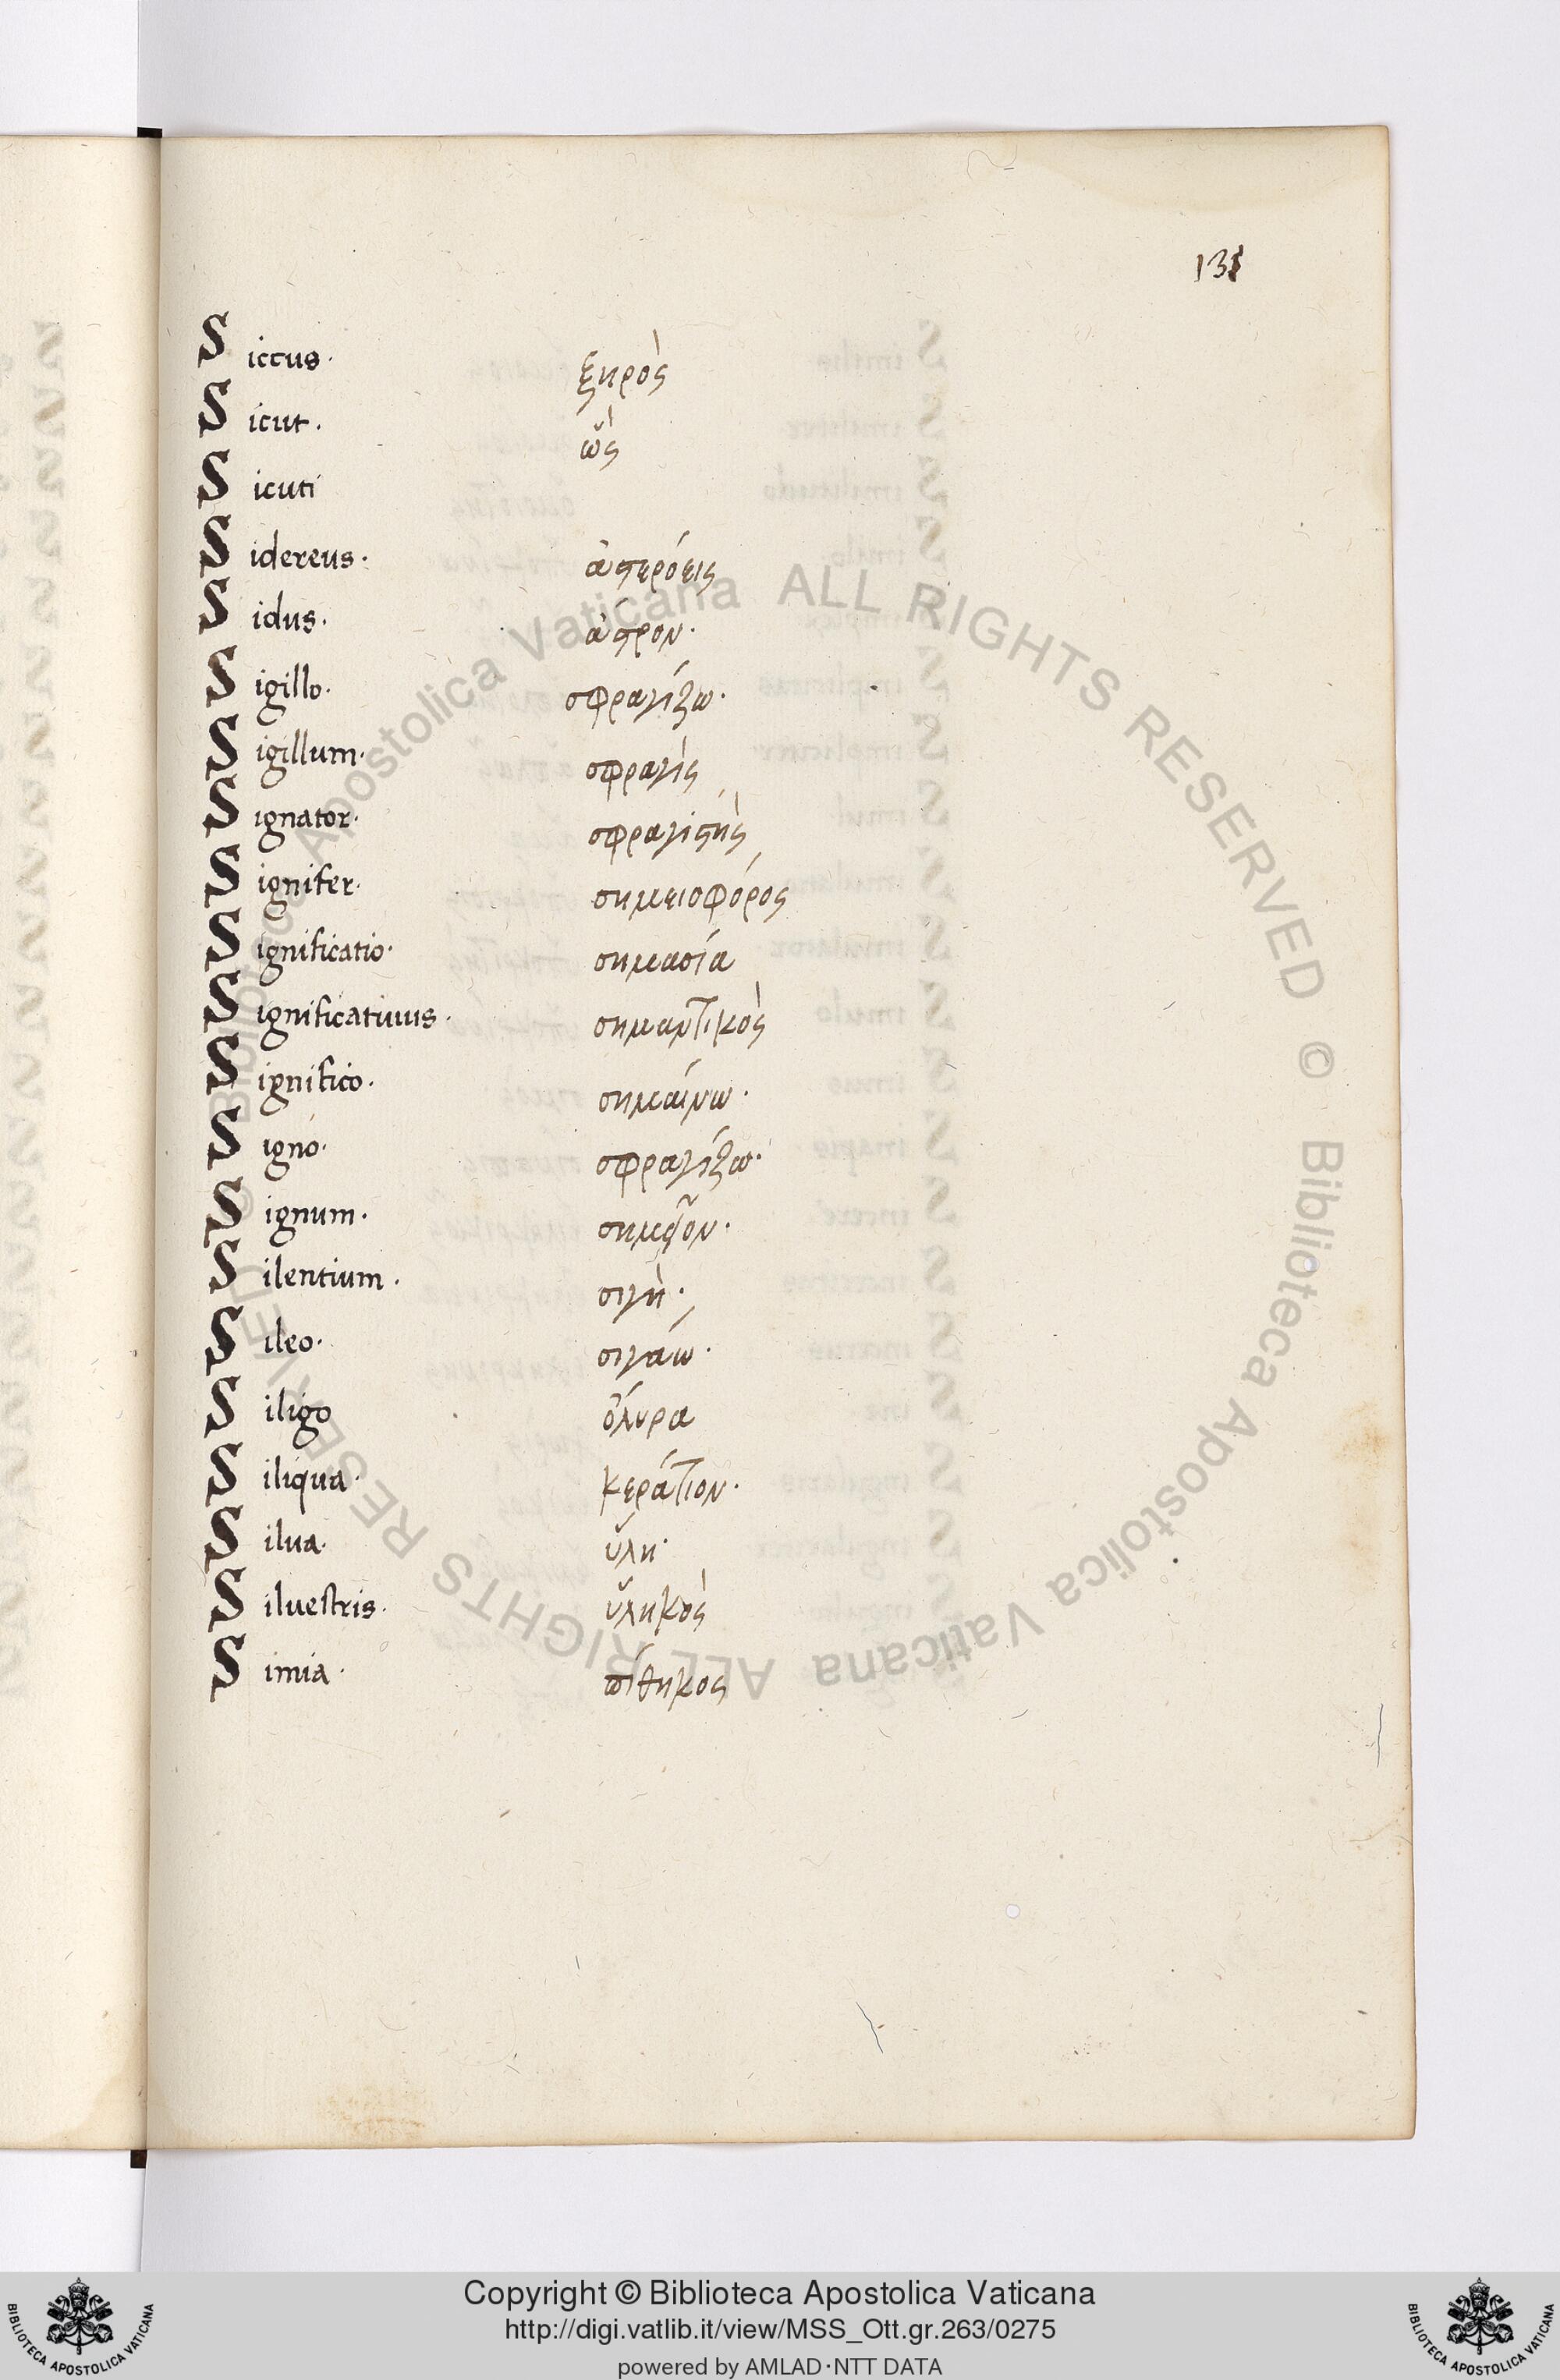 131
Siccus. ξηρὸς
Sicut. ὥς
Sicuti
Sidereus. ἀστερόεις
Sidus. ἄστρον.
Sigillo. σφραγίζω.
Sigillum. σφραγὶς
Signator. σφραγιστὴς
Signifer. σημειοφόρος
Significatio. σημασία
Significatiuus. σημαντικὸς
Significo. σημαίνω.
Signo. σφραγίζω.
Signum. σημεῖον.
Silentium. σιγὴ.
Sileo. σιγάω.
Siligo ὄλυρα
Siliqua. κεράτιον.
Silua. ὕλη.
Siluestris. ὑληκὸς
Simia. πίθηκος
© Biblioteca Apostolica Vaticana ALL RIGHTS RESERVED © Biblioteca Apostolica Vaticana ALL RIGHTS RESERVED
Copyright © Biblioteca Apostolica Vaticana
http://digi.vatlib.it/view/MSS_Ott.gr.263/0275
powered by AMLAD·NTT DATA
BIBLIOTECA APOSTOLICA VATICANA
BIBLIOTECA APOSTOLICA VATICANA